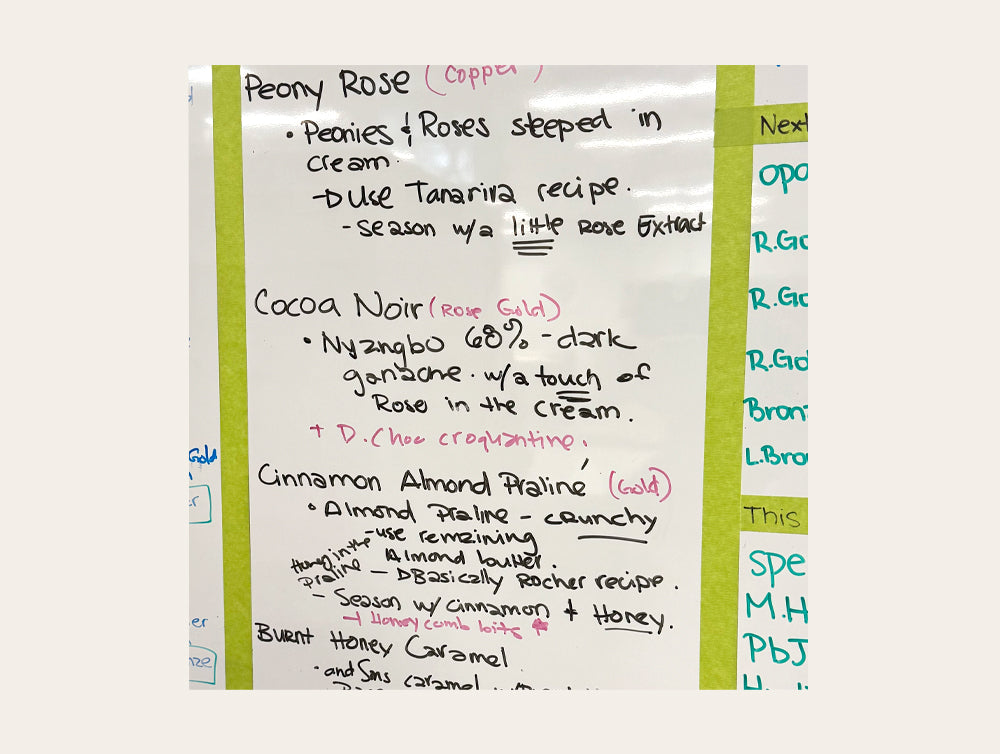 Peony Rose (Copper)
• Peonies & Roses steeped in
cream.
→ Use Tanariva recipe.
- season w/a little Rose Extract
Cocoa Noir (Rose Gold)
• Nyangbo 68% - dark
ganache. w/a touch of
Rose in the cream.
+ D. Choc croquantine.
Cinnamon Almond Praliné (Gold)
• Almond Praline - crunchy
- use remaining
Almond butter.
Honey in the
praline
→ Basically Rocher recipe.
- Season w/ cinnamon + Honey.
+ Honey comb bits
Burnt Honey Caramel
• and Sms caramel
Gold
er
er
nze
Next
opa
R.Go
R.Go
R.Gol
Bron
L.Bro
This
Spe
M.H
PbJ